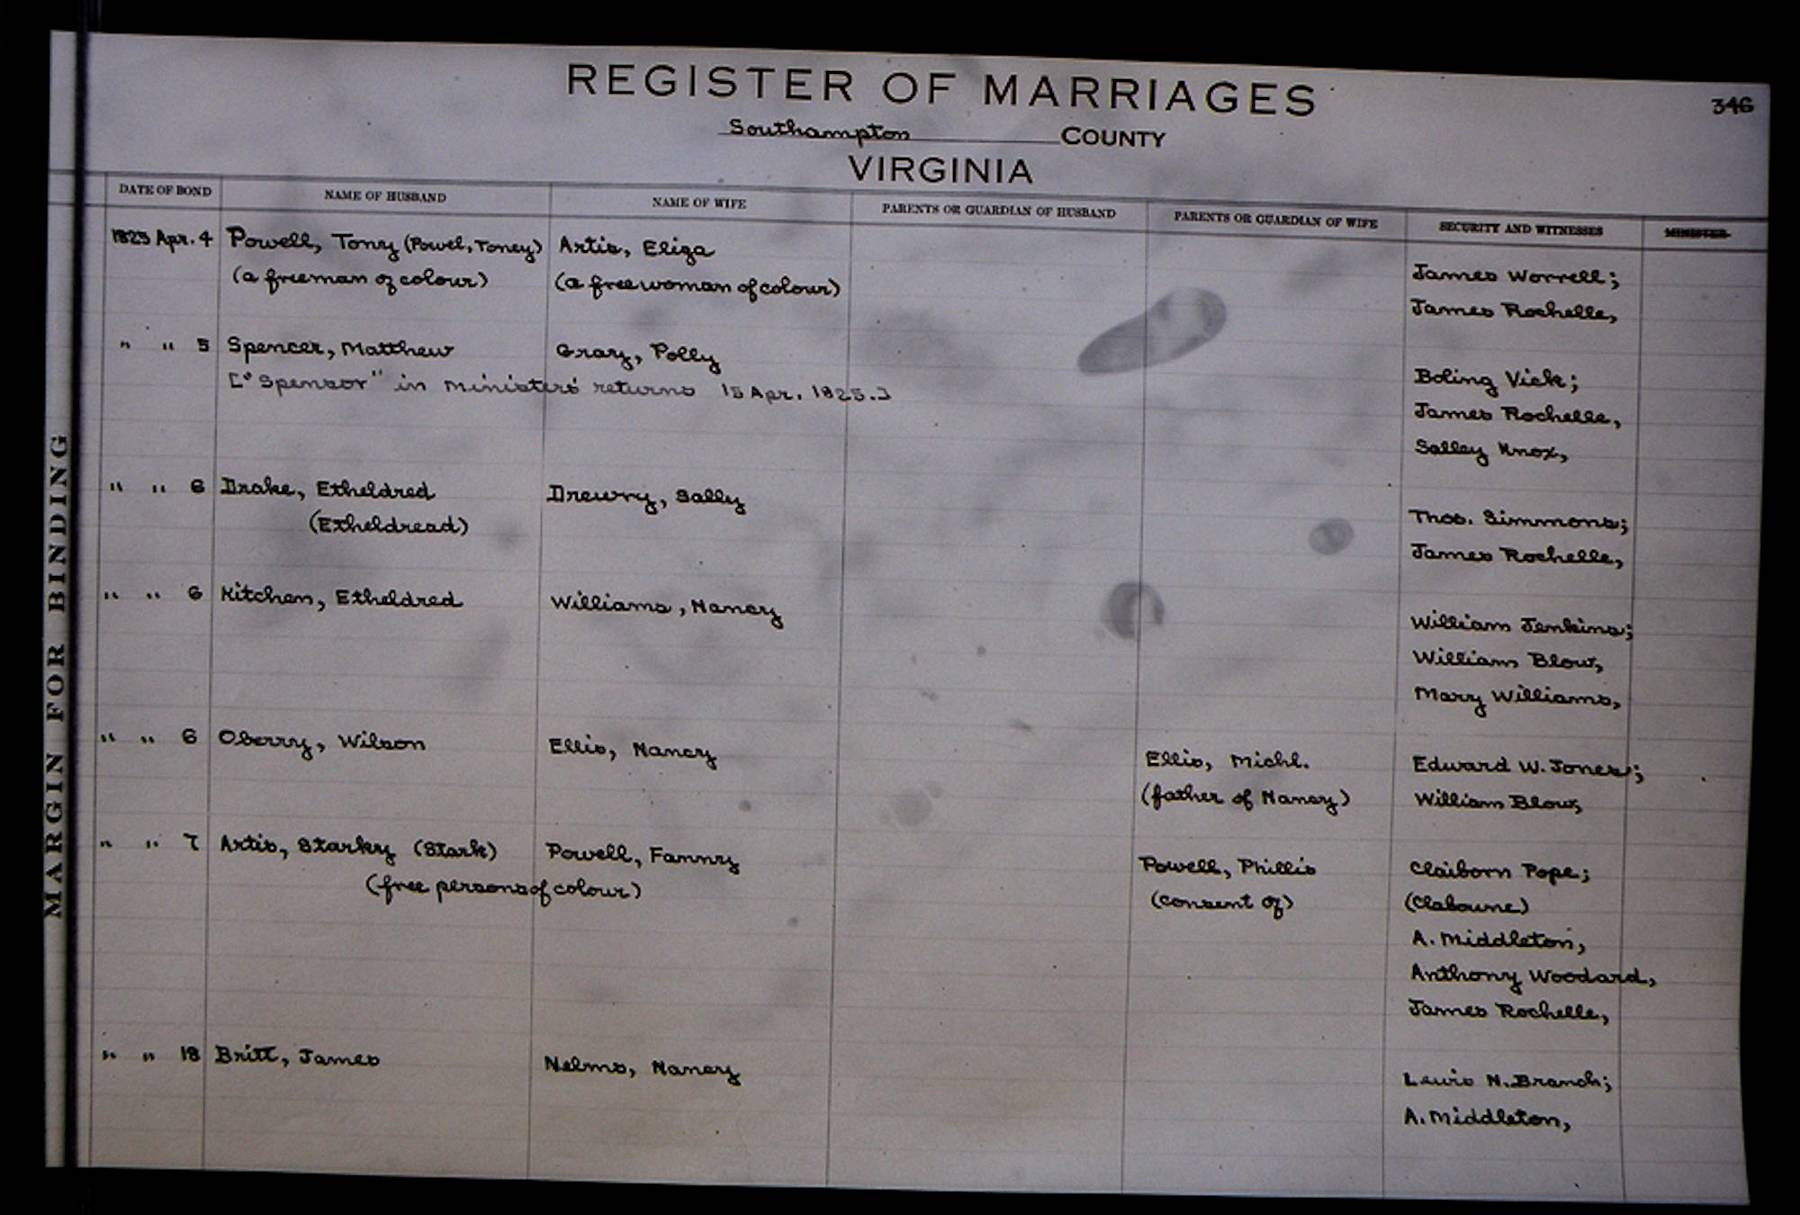 REGISTER OF MARRIAGES
346
Southampton COUNTY
VIRGINIA
MARGIN FOR BINDING
DATE OF BOND NAME OF HUSBAND NAME OF WIFE PARENTS OR GUARDIAN OF HUSBAND PARENTS OR GUARDIAN OF WIFE SECURITY AND WITNESSES MINISTER
1825 Apr. 4 Powell, Tony (Powel, Toney) Artis, Eliza
(a freeman of colour) (a free woman of colour) James Worrell;
James Rochelle,
" " 5 Spencer, Matthew Gray, Polly
["Spensor" in ministers' returns 15 Apr. 1825.] Boling Vick;
James Rochelle,
Salley Knox,
" " 6 Drake, Etheldred Drewry, Sally
(Etheldread) Thos. Simmons;
James Rochelle,
" " 6 Kitchen, Etheldred Williams, Nancy
William Jenkins;
William Blow,
Mary Williams,
" " 6 Oberry, Wilson Ellis, Nancy Ellis, Michl. Edward W. Jones;
(father of Nancy) William Blow,
" " 7 Artis, Starky (Stark) Powell, Fanny Powell, Phillis Claiborn Pope;
(free persons of colour) (consent of) (Clabourne)
A. Middleton,
Anthony Woodard,
James Rochelle,
" " 18 Britt, James Nelms, Nancy
Lewis N. Branch;
A. Middleton,